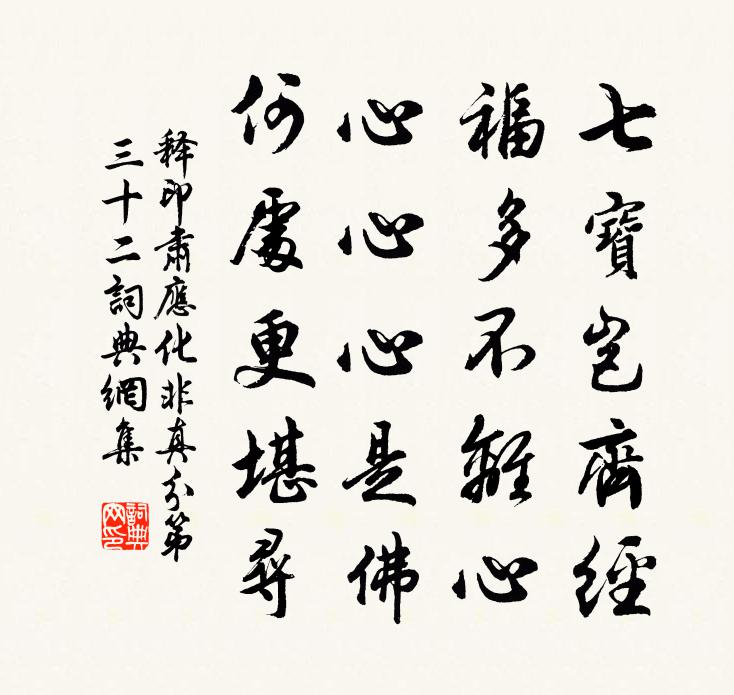 七寶豈齊經
福多不離心
心心心是佛
何處更堪尋
釋印肅應化非真分第
三十二詞典網集
詞典网印